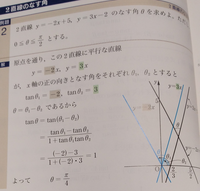 2直線のなす角
例題
2
2直線 y=−2x+5, y=3x−2 のなす角 θ を求めよ。ただ
0≦θ≦π/2 とする。
原点を通り，この2直線に平行な直線
y=−2x, y=3x
が，x軸の正の向きとなす角をそれぞれ θ₁, θ₂ とすると
tanθ₁=−2, tanθ₂=3
θ=θ₁−θ₂ であるから
tanθ=tan(θ₁−θ₂)
=(tanθ₁−tanθ₂)/(1+tanθ₁tanθ₂)
=((−2)−3)/(1+(−2)·3)=1
よって θ=π/4
y=−2x
y=3x